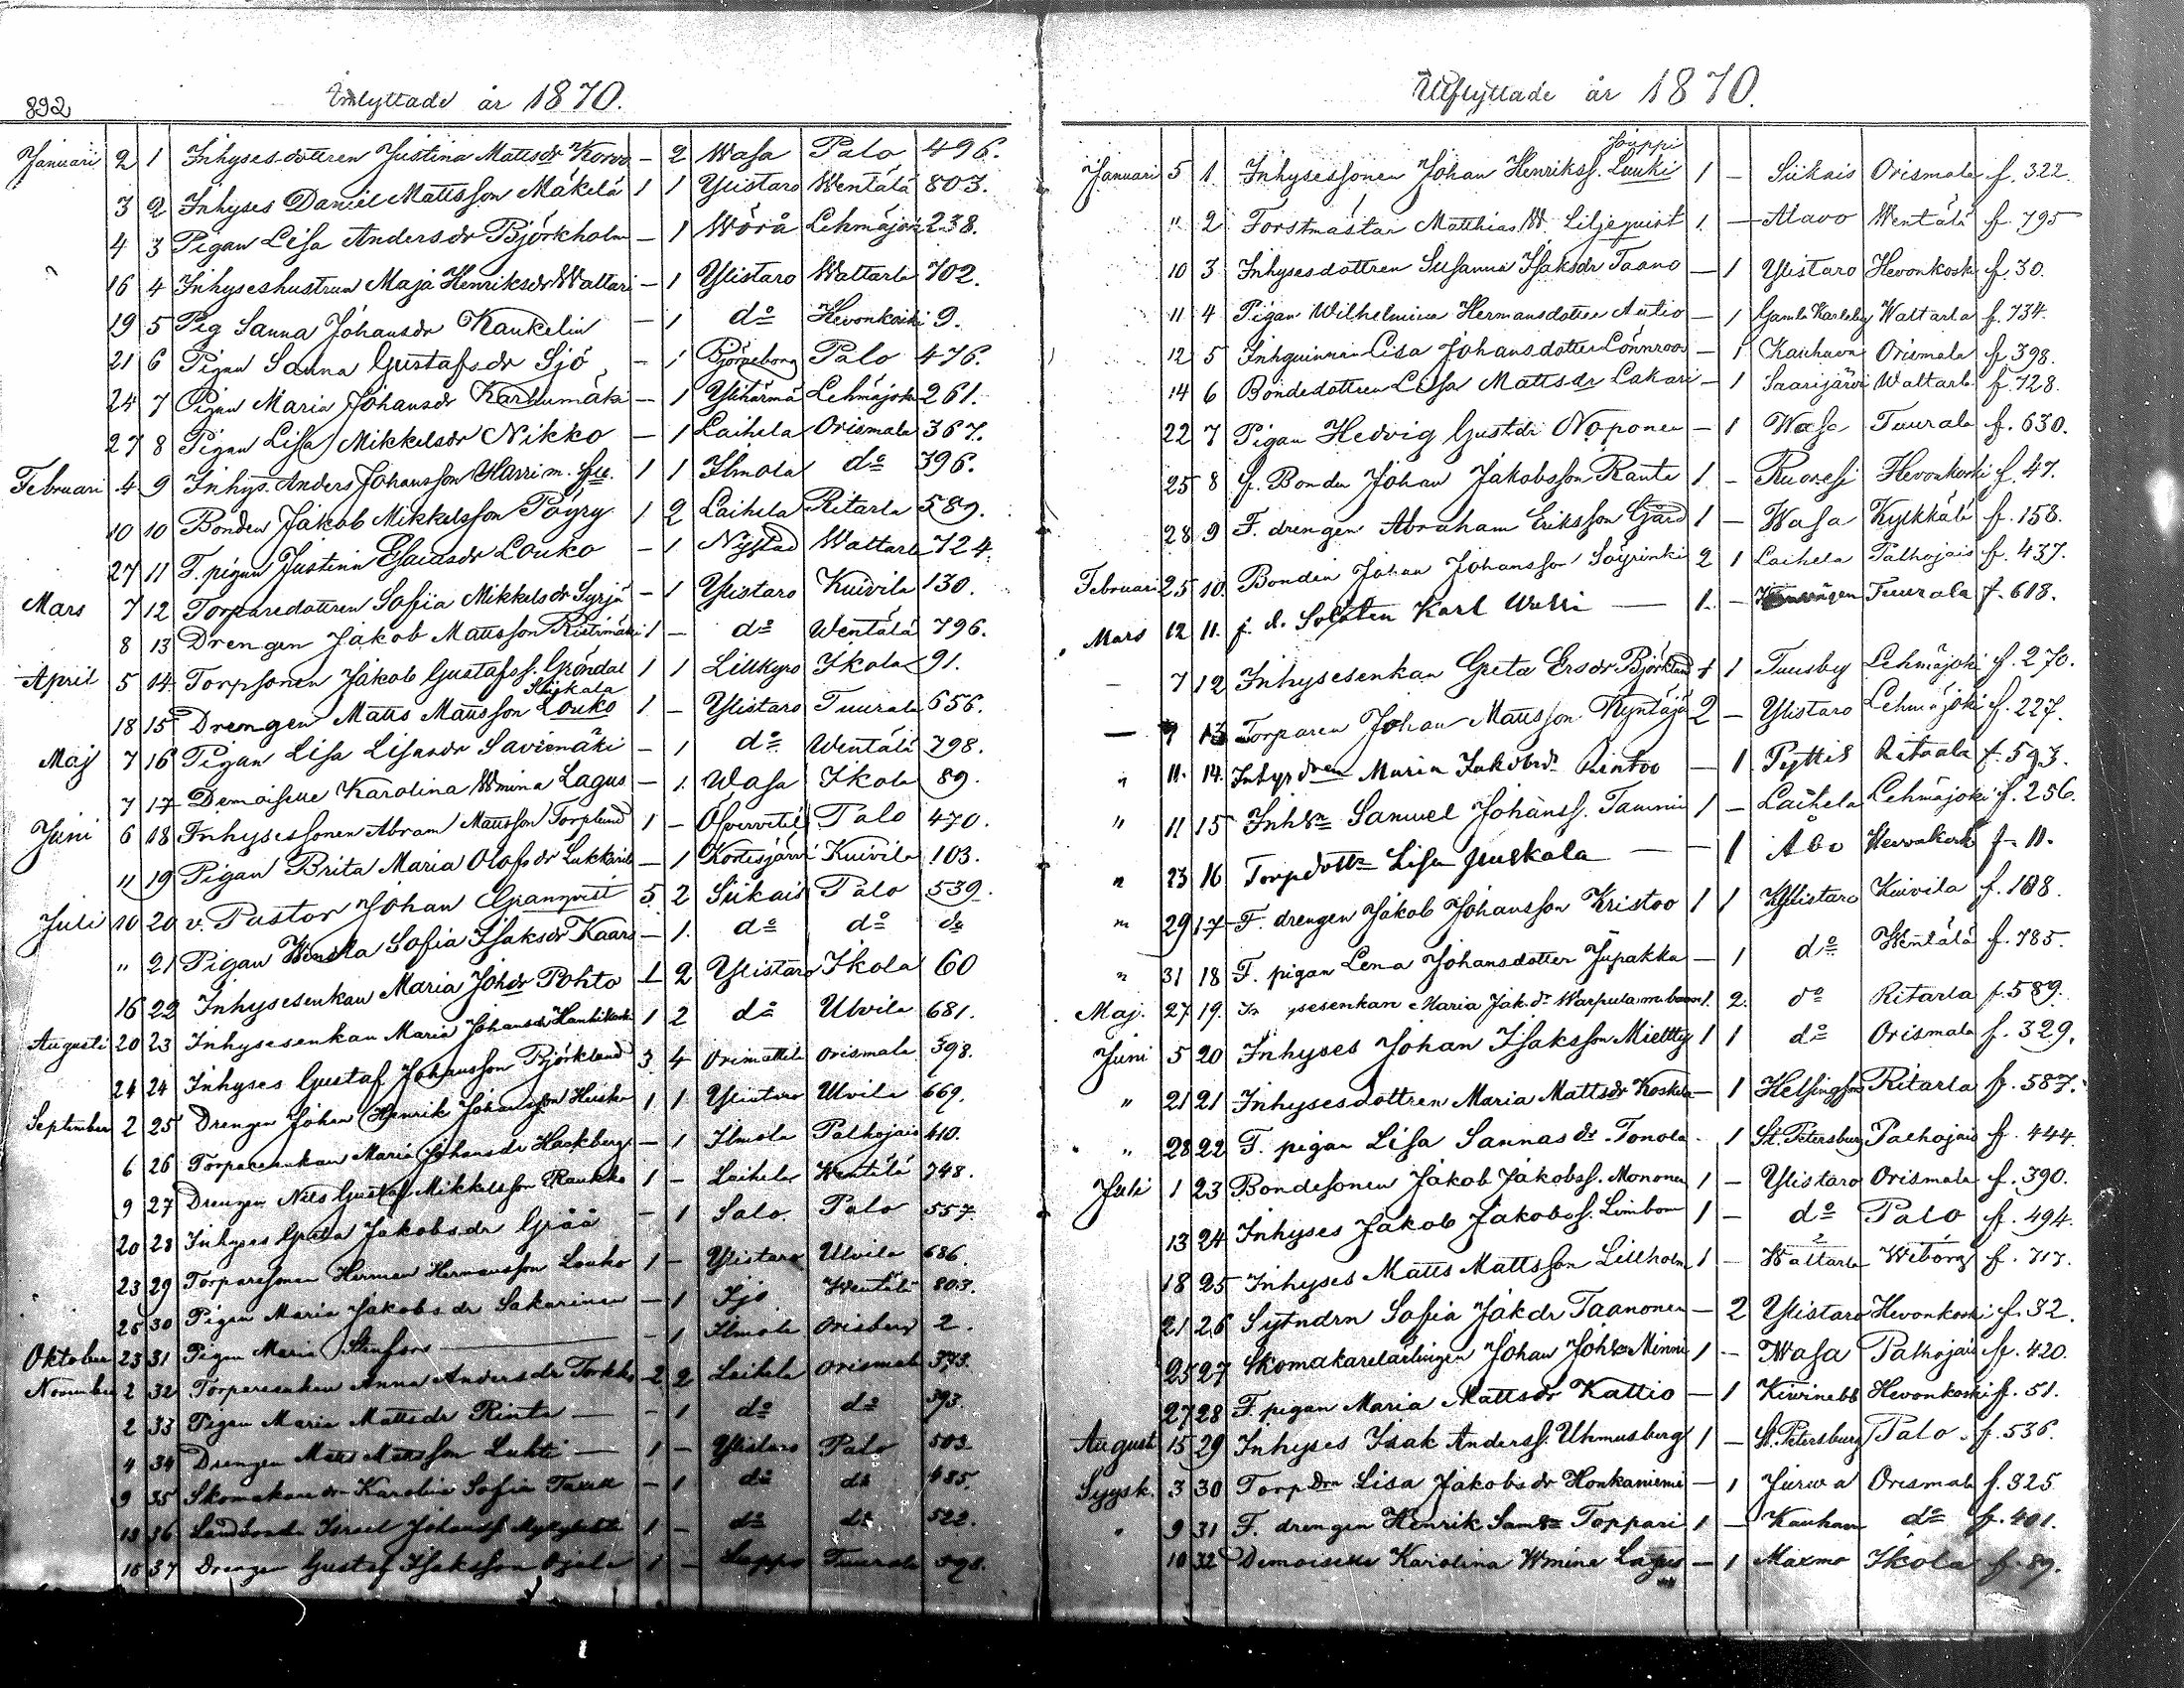 892
Inflyttade år 1870.
Januari 2 1 Inhysesdottren Justina Mattsdr Korvo - 2 Wasa Palo 496.
3 2 Inhyses Daniel Mattsson Mäkelä 1 1 Ylistaro Wentälä 803.
4 3 Pigan Lisa Andersdr Björkholm - 1 Wörå Lehmäjoki 238.
16 4 Inhyseshustrun Maja Henriksdr Wattari - 1 Ylistaro Waltarla 702.
19 5 Pig Sanna Johansdr Kaukelin - 1 do Hevonkoski 9.
21 6 Pigan Sanna Gustafsdr Sjö - 1 Björneborg Palo 476.
24 7 Pigan Maria Johansdr Karhumäki - 1 Ylihärmä Lehmäjoki 261.
27 8 Pigan Lisa Mikkelsdr Nikko - 1 Laihela Orismala 367.
Februari 4 9 Inhys. Anders Johansson Harri m. Hu. 1 1 Ilmola do 396.
10 10 Bonden Jakob Mikkelsson Pöyry 1 2 Laihela Ritarla 589.
27 11 F. pigan Justina Esaiasdr Louko - 1 Nystad Waltarla 724.
Mars 7 12 Torparedottren Sofia Mikkelsdr Syrjä - 1 Ylistaro Kuivila 130.
8 13 Drengen Jakob Mattsson Riitimäki 1 - do Wentälä 796.
April 5 14. Torpsonen Jakob Gustafss. Gröndal 1 1 Lillkyro Ikola 91.
18 15 Drengen Matts Mattsson Louko 1 - Ylistaro Tuurala 656.
Maj 7 16 Pigan Lisa Lisasdr Savienäki - 1 do Wentälä 798.
7 17 Demoiselle Karolina Wmina Lagus - 1. Wasa Ikola 89.
Juni 6 18 Inhysessonen Abram Mattsson Torplund 1 - Öfvervetil Palo 470.
11 19 Pigan Brita Maria Olofsdr Lukkarila - 1 Kortesjärvi Kuivila 103.
Juli 10 20 v. Pastor Johan Granqvist 5 2 Siikais Palo 539.
" 21 Pigan Wendla Sofia Isaksdr Kaars - 1. do do do
16 22 Inhysesenkan Maria Johdr Pohto 1 2 Ylistaro Ikola 60
Augusti 20 23 Inhysesenkan Maria Johansdr Hanhikoski 1 2 do Ulvila 681.
24 24 Inhyses Gustaf Johansson Björklund 3 4 Orimattila Orismala 398.
September 2 25 Drengen Johan Henrik Johansson Huisko 1 1 Ylistaro Ulvila 669.
6 26 Torparenkan Maria Johansdr Hackberg - 1 Ilmola Palhojais 410.
9 27 Drengen Nils Gustaf Mikkelsson Raukko 1 - Laihela Wentälä 748.
20 28 Inhyses Greta Jakobsdr Grää - 1 Salo Palo 557.
23 29 Torparesonen Herman Hermansson Louko 1 - Ylistaro Ulvila 686.
25 30 Pigan Maria Jakobsdr Sakarinen - 1 Ijo Wentälä 803.
Oktober 23 31 Pigan Maria Stenfors - 1 Ilmola Orisberg 2.
November 2 32 Torparenkan Anna Andersdr Torkko 2 2 Laihela Orismala 373.
2 33 Pigan Maria Mattsdr Rinta - 1 do do 393.
4 34 Drengen Matts Mattsson Luhti 1 - Ylistaro Palo 503.
9 35 Skomakaredn Karolin Sofia Taxell - 1 do do 485.
13 36 Landbonde Israel Johanss. 1 - do do 522.
18 37 Drengen Gustaf Isaksson Ojala 1 - Lappo Tuurala
Slijkala
Utflyttade år 1870.
Januari 5 1. Inhysessonen Johan Henrikss. Louki 1 - Siikais Orismala f. 322.
Jouppi
" 2 Forstmästar Matthias W. Liljequist 1. - Alavo Wentälä f. 795
10 3 Inhysesdottren Susanna Isaksdr Taano - 1 Ylistaro Hevonkoski f. 30.
11 4 Pigan Wilhelmina Hermansdotter Autio - 1 Gamla Karleby Waltarla f. 734.
12 5 Inhqvinnan Lisa Johansdotter Lönnroos - 1 Kauhava Orismala f. 398.
14 6 Bondedottren Lisa Mattsdr Lakari - 1 Saarijärvi Waltarla f. 728.
22 7 Pigan Hedvig Gustdr Noponen - 1 Wasa Tuurala f. 630.
25 8 f. Bonden Johan Jakobsson Ranta 1. - Ruovesi Hevonkoski f. 47.
28 9 F. drengen Abraham Eriksson Gård 1 - Wasa Kylkkälä f. 158.
Februari 25 10. Bonden Johan Johansson Säyrinki 2 1 Laihela Palhojais f. 437.
Mars 12 11. f. d. Soldaten Karl Walli 1. - Tuurala f. 618.
- 7 12 Inhysesenkan Greta Ersdr Björklund 1 1 Tuusby Lehmäjoki f. 270.
- 9 13 Torparen Johan Mattsson Kyntäjä 2 - Ylistaro Lehmäjoki f. 227.
" 11. 14. Inhysdren Maria Jakobsdr Rintoo - 1 Pyttis Ritaala f. 593.
" 11 15 Inhsn Samuel Johanss. Tammi 1 - Laihela Lehmäjoki f. 256.
" 23 16 Torpdottr Lisa Juskala - 1 Åbo Hevonkoski f. 11.
" 29 17 F. drengen Jakob Johansson Kristoo 1 1 Ylistaro Kuivila f. 108.
" 31 18 F. pigan Lena Johansdotter Jupakka - 1 do Wentälä f. 785.
Maj. 27 19. Inhysesenkan Maria Jak.dr Warpula m barn 1. 2. do Ritarla f. 589.
Juni 5 20 Inhyses Johan Isaksson Mietty 1 1 do Orismala f. 329.
" 21 21 Inhysesdottren Maria Mattsdr Koskela - 1 Helsingfors Ritarla f. 587.
" 28 22 F. pigan Lisa Sannasdr Tonola - 1 St. Petersburg Palhojais f. 444.
Juli 1 23 Bondesonen Jakob Jakobss. Mononen 1 - Ylistaro Orismala f. 390.
13 24 Inhyses Jakob Jakobss. Limbom 1 - do Palo f. 494.
18 25 Inhyses Matts Mattsson Lillholm 1 - Waltarla Wiborg f. 717.
2 1
21 26 Sytndrn Sofia Jakdr Taanonen - 2 Ylistaro Hevonkoski f. 32.
25 27 Skomakarelärlingen Johan Johss Minni 1 - Wasa Palhojais f. 420.
27 28 F. pigan Maria Mattsdr Kattio - 1 Kivinebb Hevonkoski f. 51.
August 15 29 Inhyses Isak Anderss. Uhmusberg 1 - St. Petersburg Palo. f. 536.
Syysk. 3 30 Torpdrn Lisa Jakobsdr Honkaniemi - 1 Jurva Orismala f. 325.
" 9 31 F. drengen Henrik Samsn Toppari 1 - Kauhava do f. 401.
10 32 Demoiselle Karolina Wmina Lagus - 1 Maxmo Ikola f. 89.